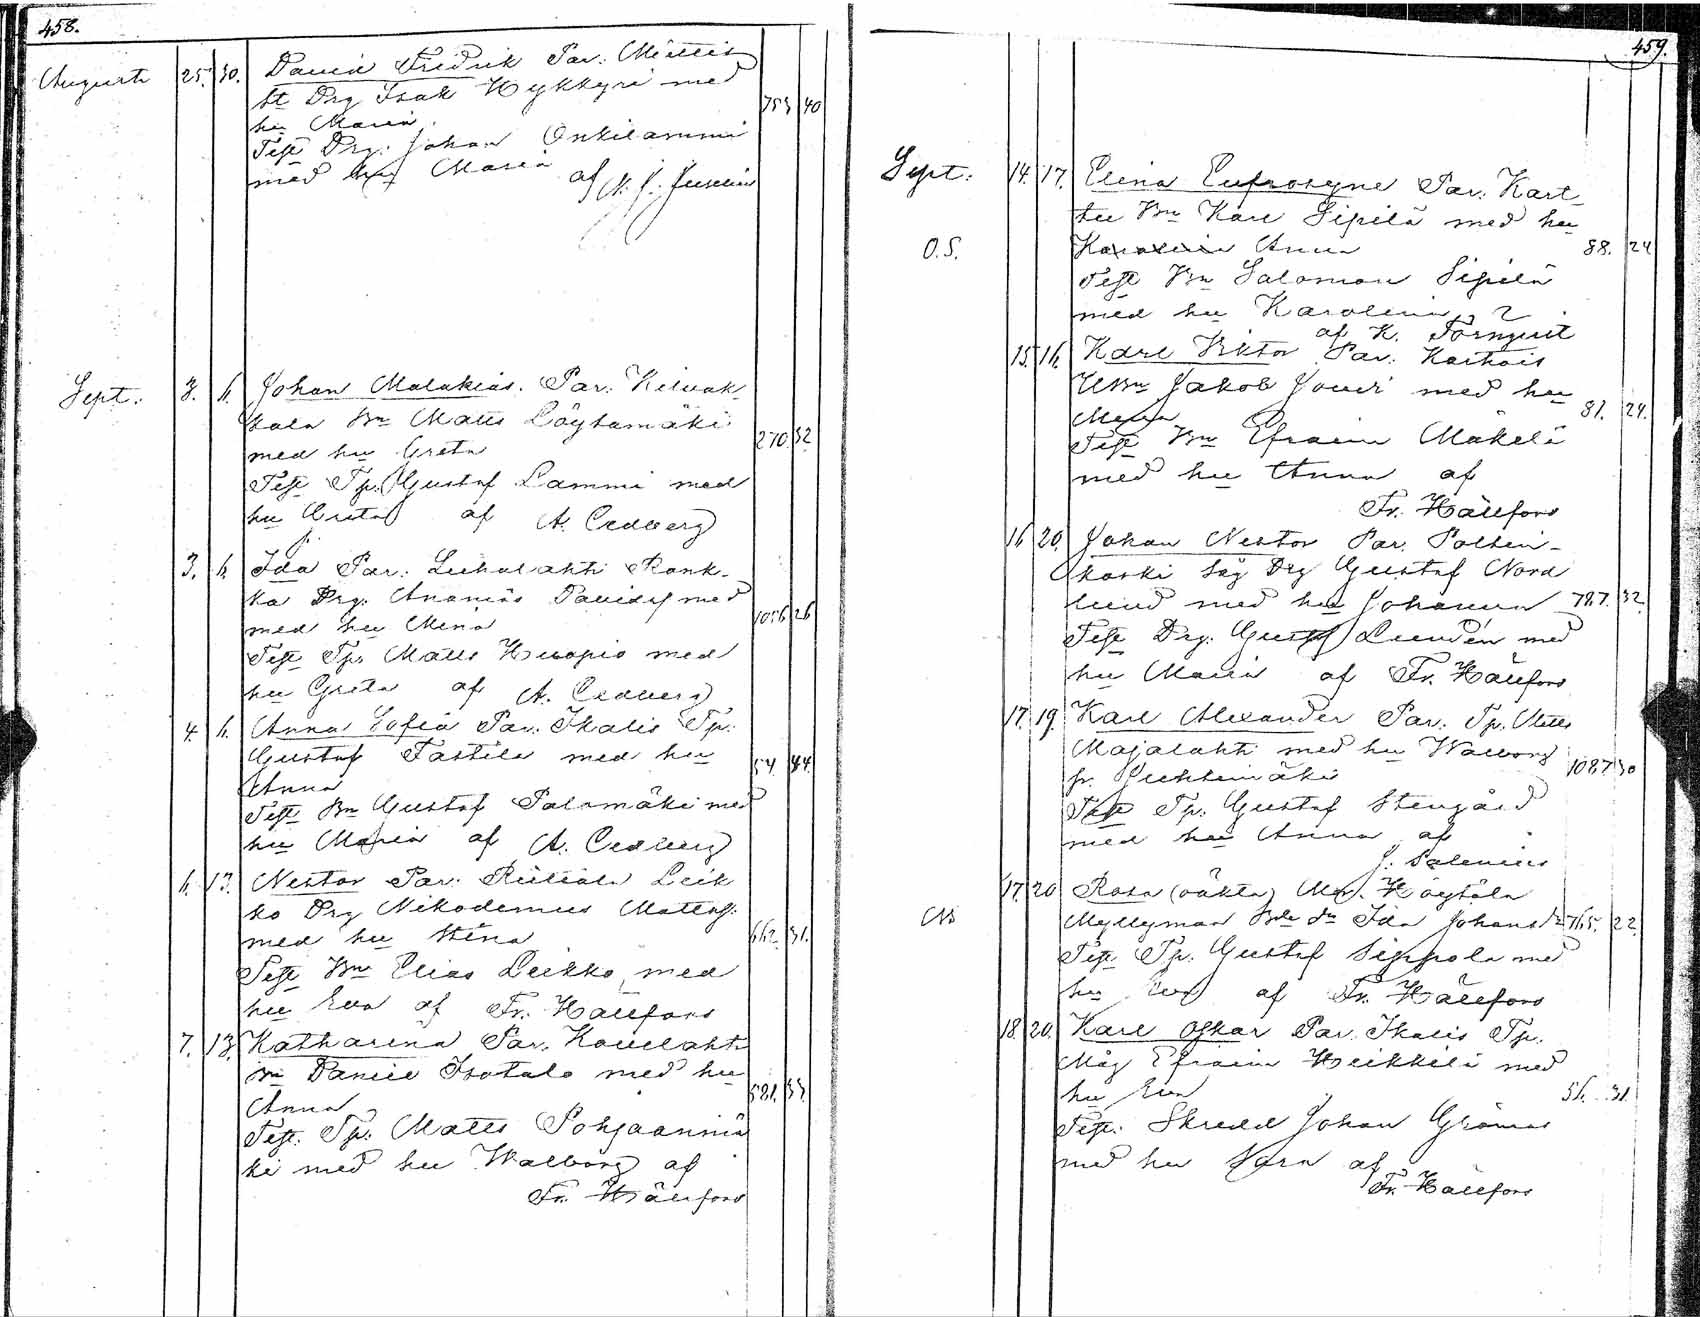 458.
Augusti 25. 30. David Fredrik Par. Mättis
bt Drg Isak Hykkyri med
hu Maria.
753 40
Test Drg. Johan Onkilammi
med hu Maria
af
Sept. 3. 6. Johan Malakias. Par. Kilvak-
kala Bn Matts Löytömäki
270 32
med hu Greta
Test Tp. Gustaf Lammi med
hu Greta af A. Cedberg
3. 6. Ida Par. Luhalahti Rank-
ka Drg. Ananias Davidsf med
1056 26
med hu Mina
Test Tp. Matts Kuopio med
hu Greta af A. Cedberg
4. 6. Anna Sofia Par. Ikalis Tp.
Gustaf Tastila med hu
54 44
Anna
Test Bn Gustaf Salomäki med
hu Maria af A. Cedberg
6. 13. Nestor Par. Riitiala Leik
ko Drg Nikodemus Mattsf.
med hu Stina
662. 31.
Test Bn Elias Leikko med
hu Eva af Fr. Hällfors
7. 13. Katharina Par. Kovelahti
Bn Daniel Isotalo med hu
581. 33.
Anna
Test. Tp. Matts Pohjaanmä
ki med hu Walborg af
Fr. Hällfors
459.
Sept. 14. 17. Elina Eufrosyne Par. Kart-
tu Bn Karl Sipilä med hu
O.S. Karolina Anna
88. 24
Test Bn Salomon Sipilä
med hu Karolina
af K. Törnqvist
15. 16. Karl Viktor Par. Karhois
UBn Jakob Jouri med hu
81. 24.
Test Bn Efraim Mäkelä
med hu Anna af
Fr. Hällfors
16 20. Johan Nestor Par. Poltin-
koski Såg Drg Gustaf Nord
lund med hu Johanna 787. 32.
Test Drg. Gustaf Lundén med
hu Maria af Fr. Hällfors
17. 19. Karl Alexander Par. Tp. Matts
Majalahti med hu Walborg
fr. Juhtimäki
1087 30
Test Tp. Gustaf Stengård
med hu Anna af
J. Salenius
17. 20 Rosa (oäkta) Mor. Höytölä
Myllymaa Bde dr Ida Johansdr 765. 22.
Test Tp. Gustaf Sippola med
hu Eva af Fr. Hällfors
18. 20. Karl Oskar Par. Ikalis Tp.
Måg Efraim Heikkilä med
hu Eva
56. 31.
Test. Skredd Johan Grönroos
med hu Sara af
Fr. Hällfors